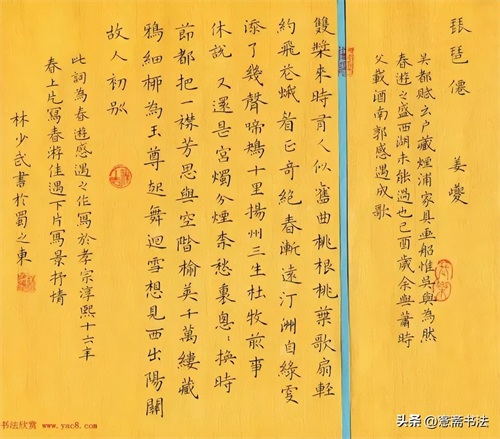 琵琶僊 姜夔
吴都賦云户藏煙浦家具画船惟吴興為然
春遊之盛西湖未能過也己酉歲余與蕭時
父載酒南郭感遇成歌
雙槳來時有人似舊曲桃根桃葉歌扇輕
約飛花蛾眉正奇絕春漸遠汀洲自綠更
添了幾聲啼鴂十里揚州三生杜牧前事
休說 又還是宮燭分煙柰愁裏悤悤換時
節都把一襟芳思與空階榆莢千萬縷藏
鴉細柳為玉尊起舞迴雪想見西出陽關
故人初别
此詞為春遊感遇之作寫於孝宗淳熙十六年
春上片寫春游佳遇下片寫景抒情
林少武書於蜀之東
书法欣赏 www.yac8.com
头条 @斋书法